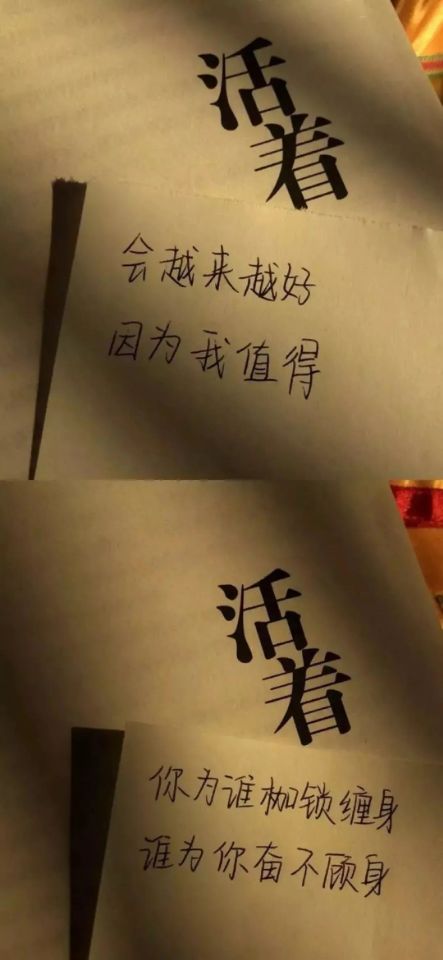 活着
会越来越好
因为我值得
活着
你为谁枷锁缠身
谁为你奋不顾身